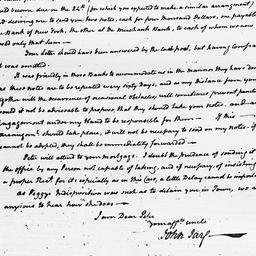 become due on the 24th (for which you expected to make a similar arrangement)
desiring me to send you two notes, each for four Thousand Dollars, one payable
Bank of New York, the other at the Merchants Bank, to each of whom we now
owed only that sum
Your letter should have been answered by the last post, but having
it was omitted.
It was friendly in those Banks to accommodate us in the manner they have done
as these notes are to be repeated every sixty days, and as my distance from you
together with the occurrence of occasional obstacles will sometimes prevent
would it not be advisable to propose, that they should take your notes, and
Engagement under my Hand to be responsible for them — If this
arrangemt should take place, it will not be necessary to send on my notes. If
cannot be adopted, they shall be immediately forwarded —
Peter will attend to your mortgage. I doubt the prudence of sending it
the office by any Person not capable of taking, and if necessary, of insisting
a proper Rect for it: especially as in this Case, a little Delay cannot be
as Peggy's Indisposition was such as to detain you in Town, we a
anxious to hear how she does —
I am Dear Peter
Your affte uncle
John Jay